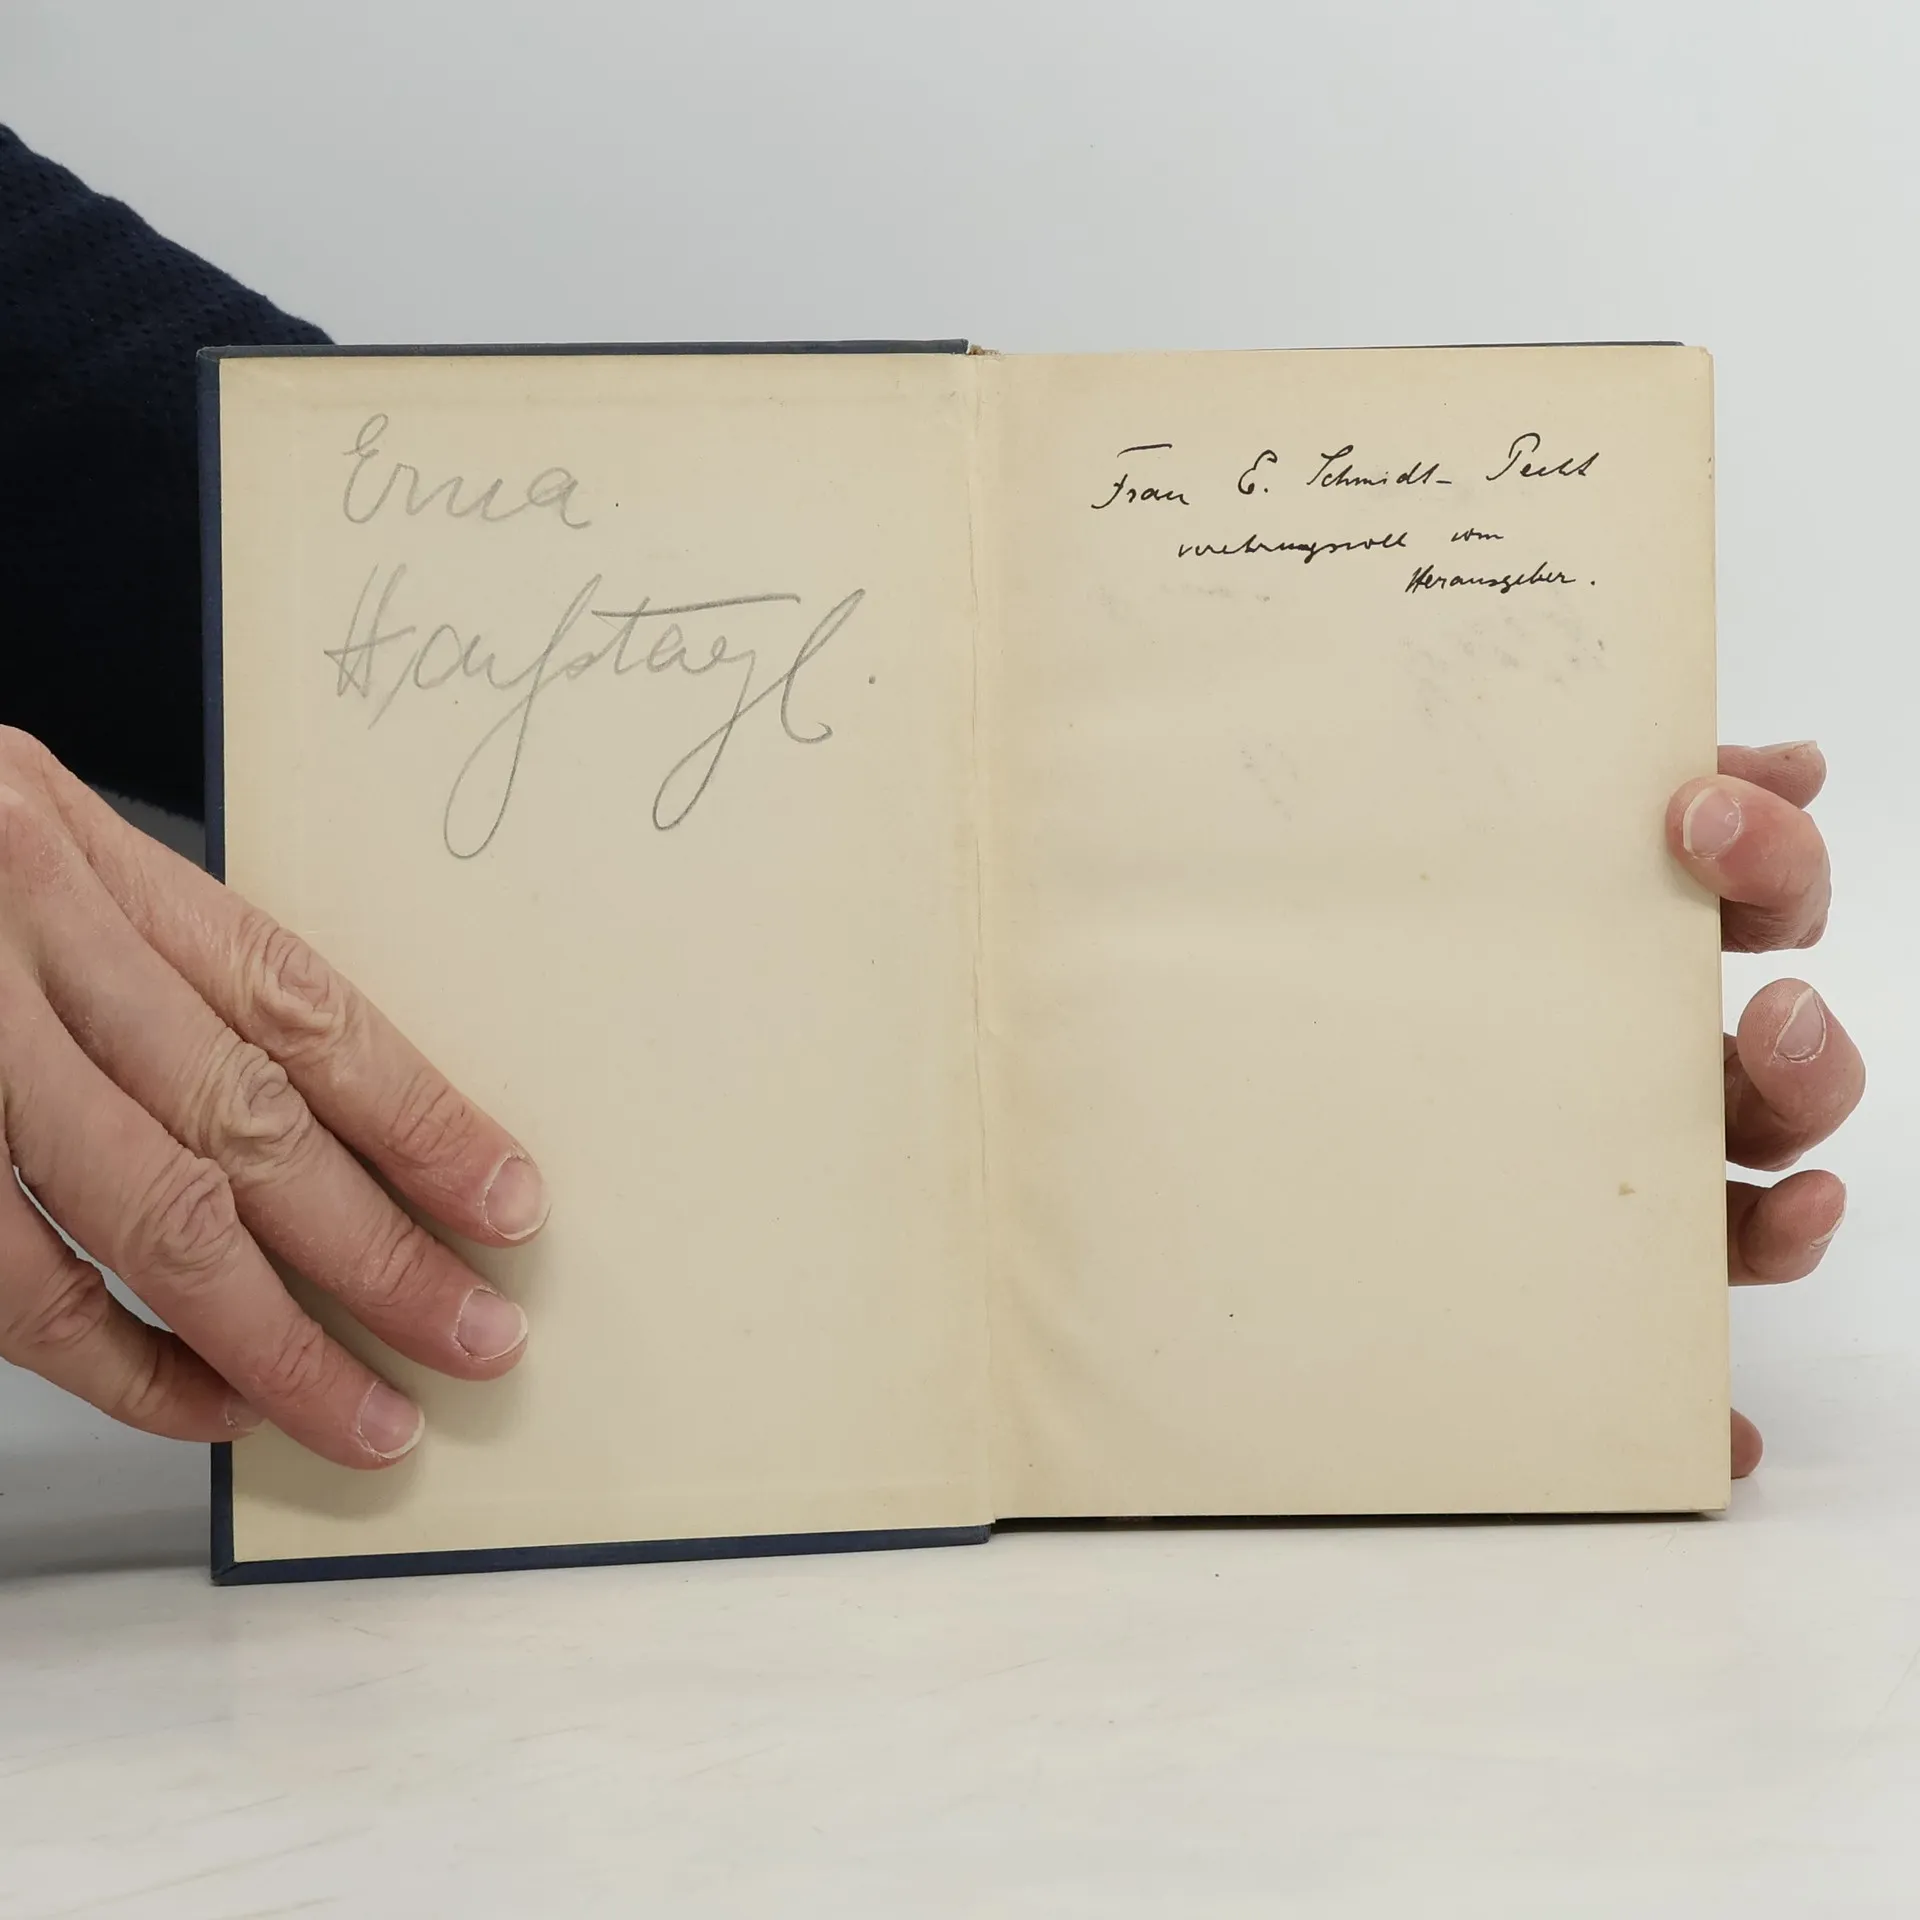 Erna
Hanfstaengl.
Frau E. Schmidt-Pecht
verehrungsvoll vom
Herausgeber.